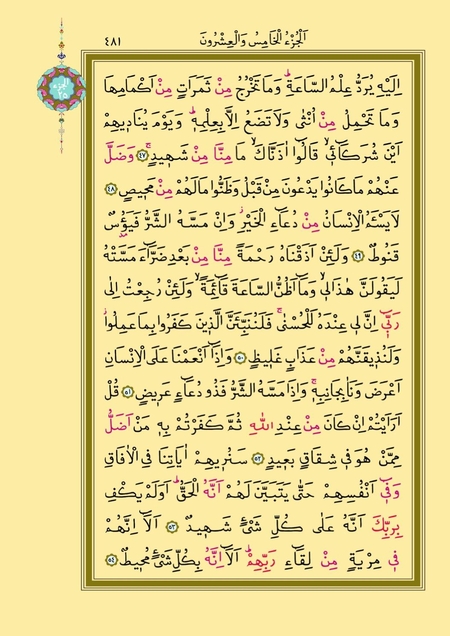 ٤٨١ اَلْجُزْءُ الْخَامِسُ وَالْعِشْرُونَ
الجزء ٢٥
اِلَيْهِ يُرَدُّ عِلْمُ السَّاعَةِۜ وَمَا تَخْرُجُ مِنْ ثَمَرَاتٍ مِنْ اَكْمَامِهَا
وَمَا تَحْمِلُ مِنْ اُنْثٰى وَلَا تَضَعُ اِلَّا بِعِلْمِه۪ۜ وَيَوْمَ يُنَاد۪يهِمْ
اَيْنَ شُرَكَٓائ۪يۙ قَالُٓوا اٰذَنَّاكَۙ مَا مِنَّا مِنْ شَه۪يدٍۚ ﴿٤٧﴾ وَضَلَّ
عَنْهُمْ مَا كَانُوا يَدْعُونَ مِنْ قَبْلُ وَظَنُّوا مَا لَهُمْ مِنْ مَح۪يصٍ ﴿٤٨﴾
لَا يَسْـَٔمُ الْاِنْسَانُ مِنْ دُعَٓاءِ الْخَيْرِۘ وَاِنْ مَسَّهُ الشَّرُّ فَيَؤُ۫سٌ
قَنُوطٌ ﴿٤٩﴾ وَلَئِنْ اَذَقْنَاهُ رَحْمَةً مِنَّا مِنْ بَعْدِ ضَرَّٓاءَ مَسَّتْهُ
لَيَقُولَنَّ هٰذَا ل۪يۙ وَمَٓا اَظُنُّ السَّاعَةَ قَٓائِمَةًۙ وَلَئِنْ رُجِعْتُ اِلٰى
رَبّ۪ٓي اِنَّ ل۪ي عِنْدَهُ لَلْحُسْنٰىۚ فَلَنُنَبِّئَنَّ الَّذ۪ينَ كَفَرُوا بِمَا عَمِلُواۘ
وَلَنُذ۪يقَنَّهُمْ مِنْ عَذَابٍ غَل۪يظٍ ﴿٥٠﴾ وَاِذَٓا اَنْعَمْنَا عَلَى الْاِنْسَانِ
اَعْرَضَ وَنَاٰ بِجَانِبِه۪ۚ وَاِذَا مَسَّهُ الشَّرُّ فَذُو دُعَٓاءٍ عَر۪يضٍ ﴿٥١﴾ قُلْ
اَرَاَيْتُمْ اِنْ كَانَ مِنْ عِنْدِ اللّٰهِ ثُمَّ كَفَرْتُمْ بِه۪ مَنْ اَضَلُّ
مِمَّنْ هُوَ ف۪ي شِقَاقٍ بَع۪يدٍ ﴿٥٢﴾ سَنُر۪يهِمْ اٰيَاتِنَا فِي الْاٰفَاقِ
وَف۪ٓي اَنْفُسِهِمْ حَتّٰى يَتَبَيَّنَ لَهُمْ اَنَّهُ الْحَقُّۜ اَوَلَمْ يَكْفِ
بِرَبِّكَ اَنَّهُ عَلٰى كُلِّ شَيْءٍ شَه۪يدٌ ﴿٥٣﴾ اَلَٓا اِنَّهُمْ
ف۪ي مِرْيَةٍ مِنْ لِقَٓاءِ رَبِّهِمْۜ اَلَٓا اِنَّهُ بِكُلِّ شَيْءٍ مُح۪يطٌ ﴿٥٤﴾